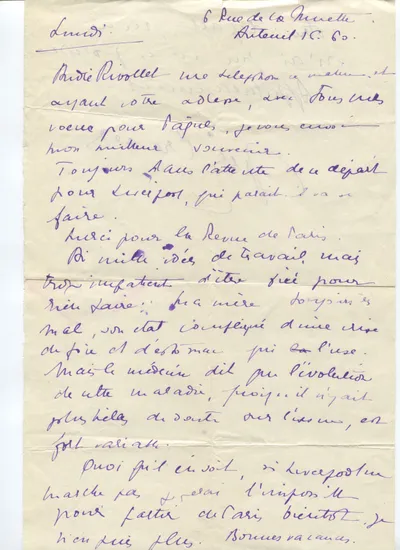 6 Rue de la Muette
Lundi. Auteuil 15.60.
André Rivollet me téléphone ce matin, et
ayant votre adresse, avec tous mes
voeux pour Pâques, je vous envoie
mon meilleur souvenir.
Toujours dans l'attente de ce départ
pour Liverpool, qui paraît-il va se
faire.
Merci pour la Revue de Paris.
Ai mille idées de travail, mais
trop impatient d'être fixé pour
rien faire. Ma mère toujours
mal, son état compliqué d'une crise
de foie et d'estomac qui l'use.
Mais le médecin dit que l'évolution
de cette maladie, puisqu'il n'y ait
plus hélas de doute sur l'issue, est
fort variable.
Quoi qu'il en soit, si Liverpool ne
marche pas je ferai l'impossible
pour partir de Paris bientôt, je
n'en puis plus. Bonnes vacances.